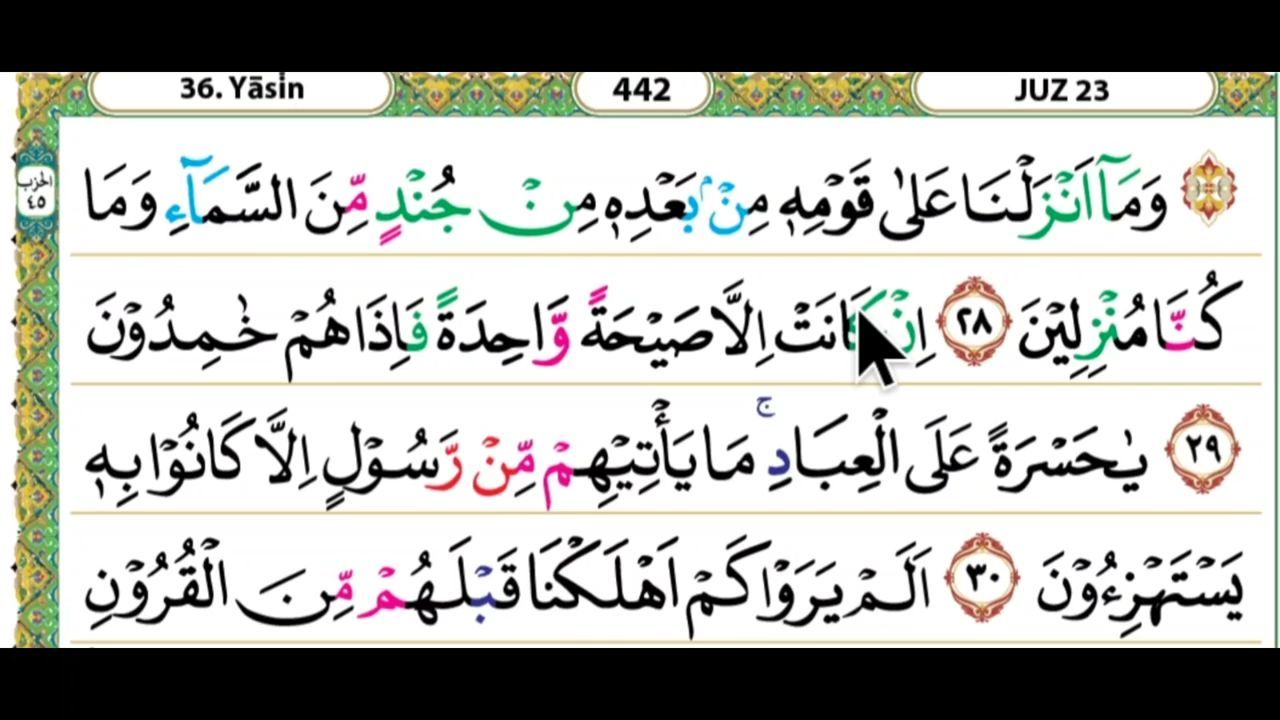 36. Yāsin
442
JUZ 23
الحزب
٤٥
وَمَآ اَنْزَلْنَا عَلٰى قَوْمِهٖ مِنْۢ بَعْدِهٖ مِنْ جُنْدٍ مِّنَ السَّمَآءِ وَمَا
كُنَّا مُنْزِلِيْنَ ٢٨ اِنْ كَانَتْ اِلَّا صَيْحَةً وَّاحِدَةً فَاِذَا هُمْ خٰمِدُوْنَ
٢٩ يٰحَسْرَةً عَلَى الْعِبَادِۚ مَا يَأْتِيْهِمْ مِّنْ رَّسُوْلٍ اِلَّا كَانُوْا بِهٖ
يَسْتَهْزِءُوْنَ ٣٠ اَلَمْ يَرَوْا كَمْ اَهْلَكْنَا قَبْلَهُمْ مِّنَ الْقُرُوْنِ